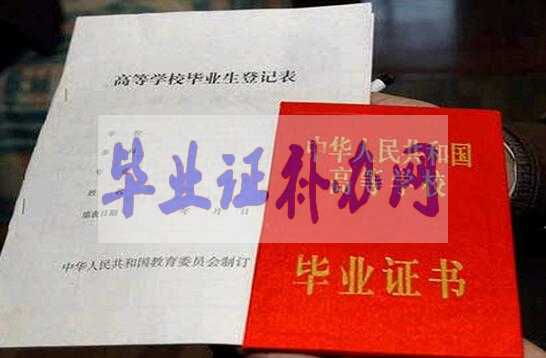 高等学校毕业生登记表
学校
姓名
填表日期 年 月 日
中华人民共和国教育委员会制订
中华人民共和国
高等学校
毕业证书
毕业证补办网